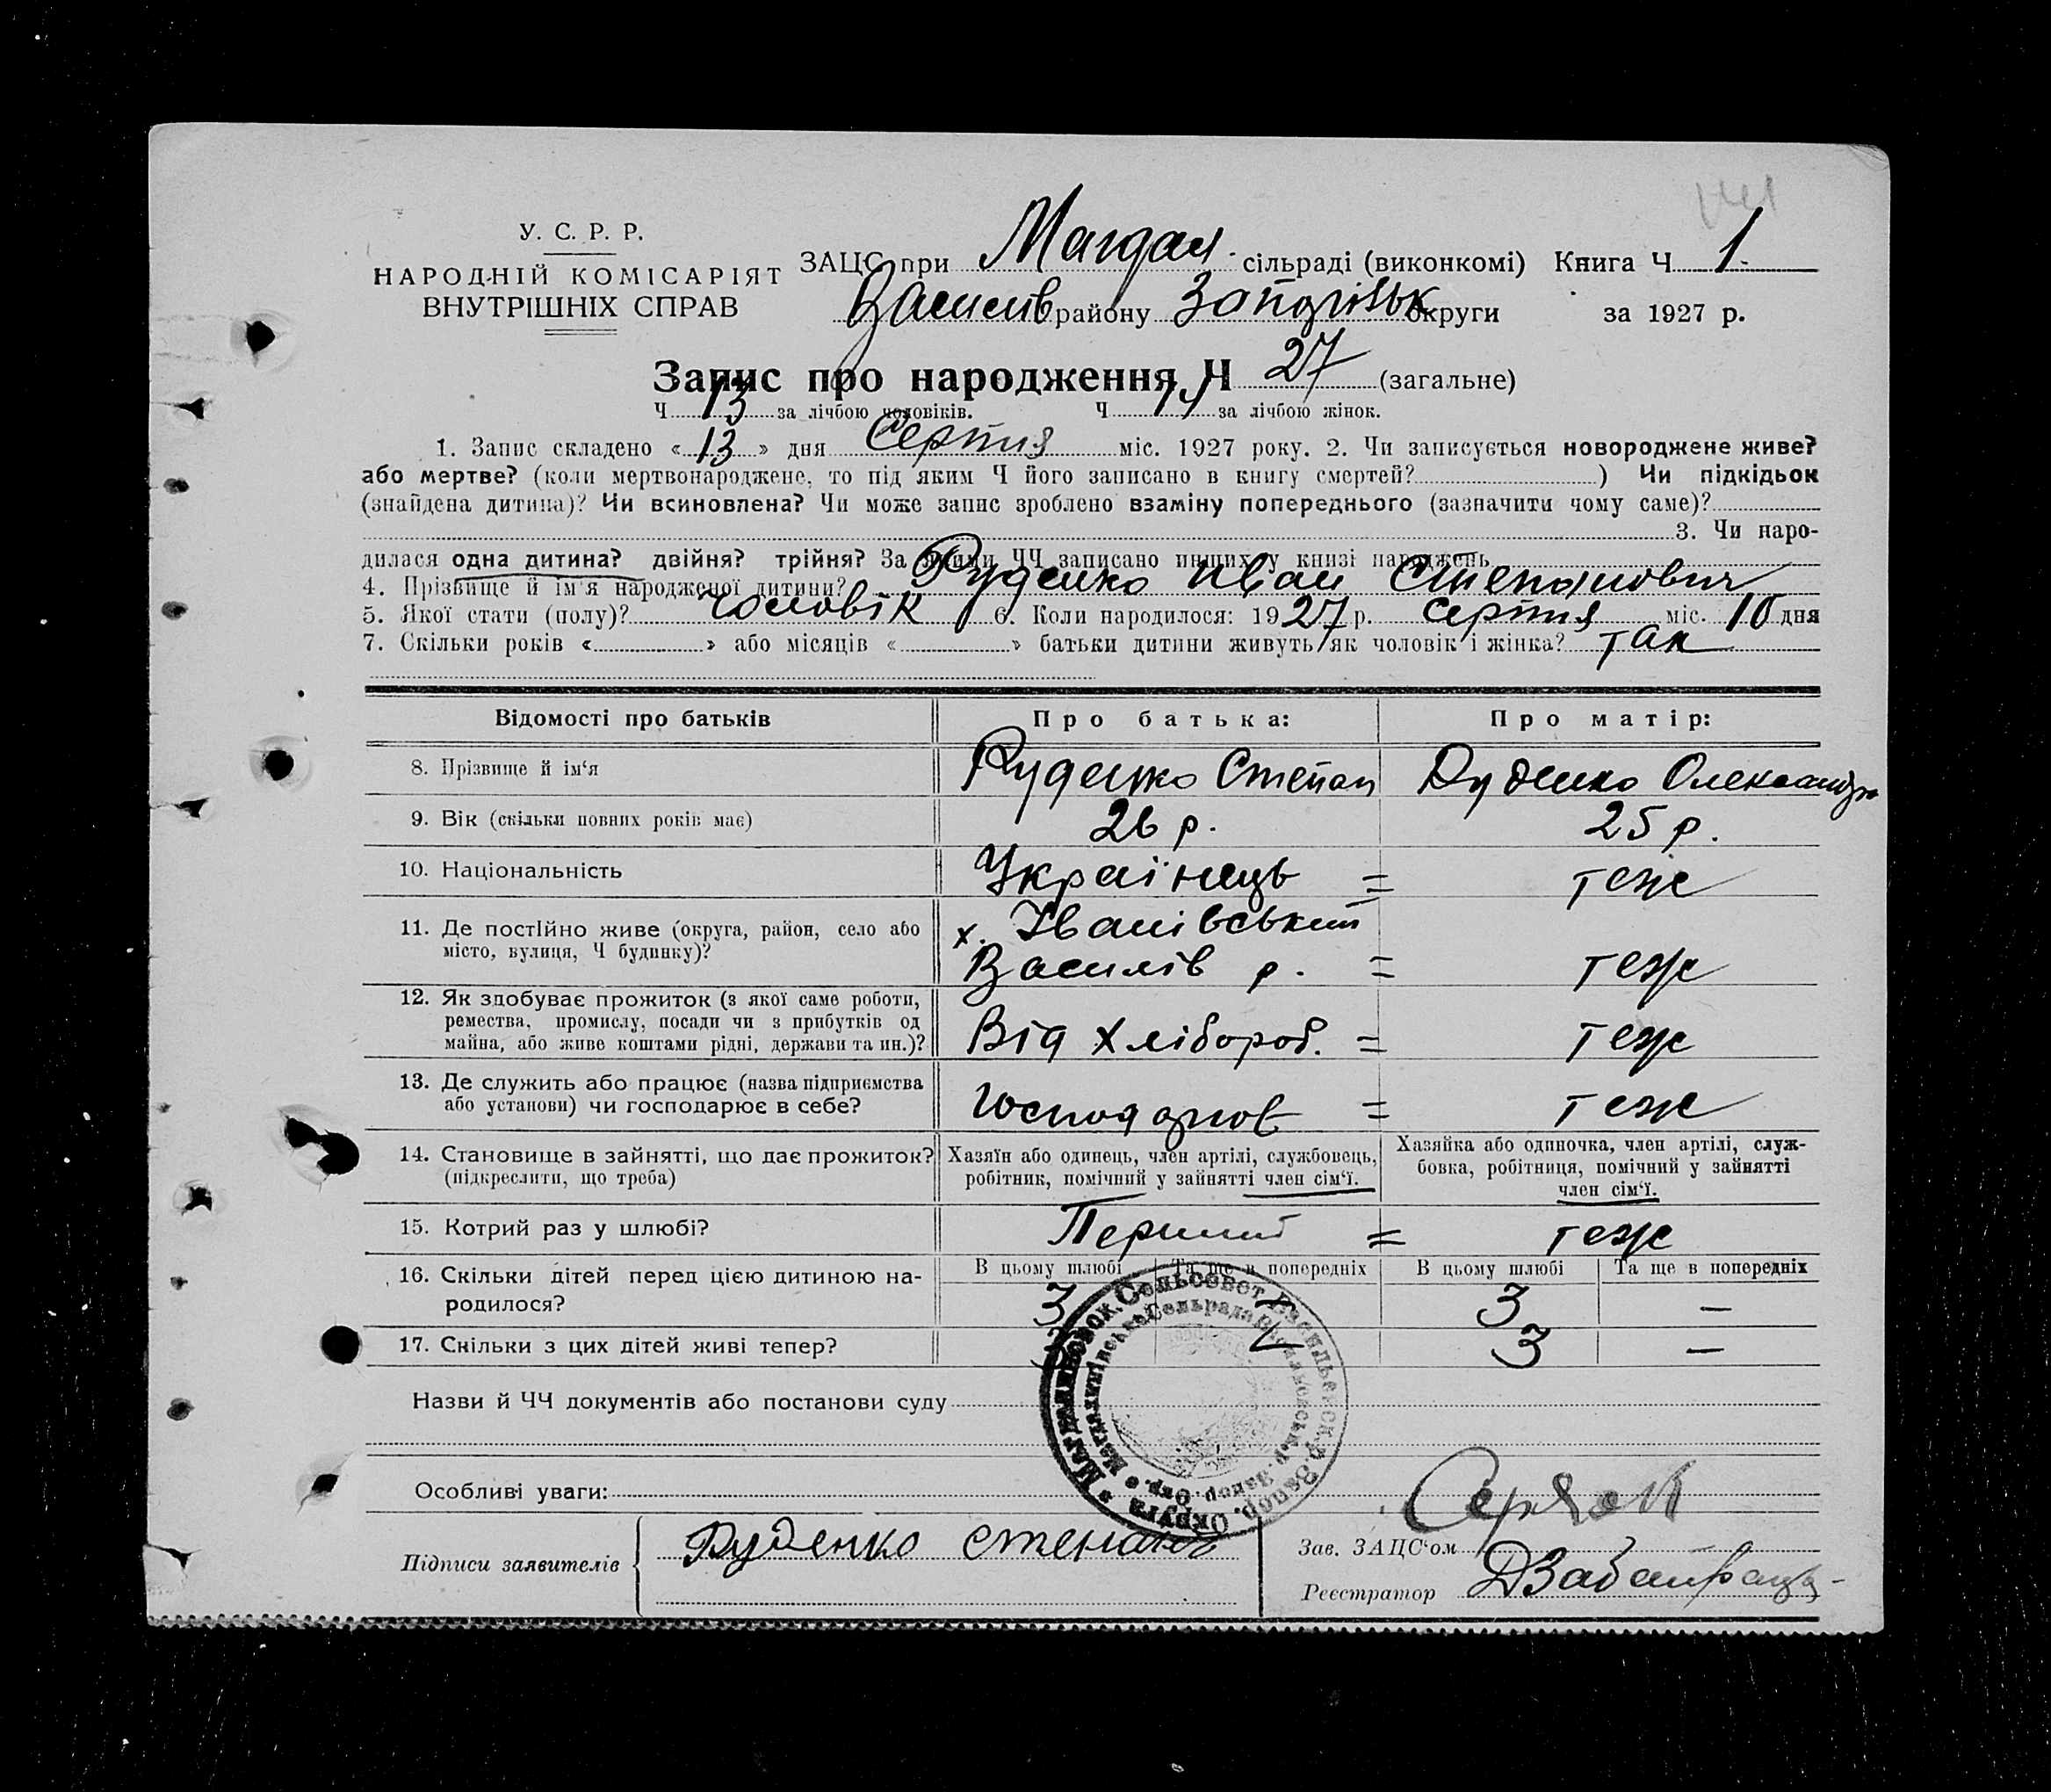 У. С. Р. Р.
НАРОДНІЙ КОМІСАРІЯТ
ВНУТРІШНІХ СПРАВ
ЗАЦС при Магдал. сільраді (виконкомі) Книга Ч 1.
Василів району Запоріськ округи за 1927 р.
Запис про народження Ч 27 (загальне)
Ч 13 за лічбою чоловіків. Ч 14 за лічбою жінок.
1. Запис складено «13» дня Серпня міс. 1927 року. 2. Чи записується новороджене живе?
або мертве? (коли мертвонароджене, то під яким Ч його записано в книгу смертей? ) Чи підкідьок
(знайдена дитина)? Чи всиновлена? Чи може запис зроблено взаміну попереднього (зазначити чому саме)?
3. Чи наро-
дилася одна дитина? двійня? трійня? За якими ЧЧ записано инших у книзі народжень
4. Прізвище й ім'я народженої дитини? Руденко Іван Степанович
5. Якої стати (полу)? чоловік 6. Коли народилося: 1927 р. серпня міс. 10 дня
7. Скільки років « » або місяців « » батьки дитини живуть як чоловік і жінка? так
Відомості про батьків Про батька: Про матір:
8. Прізвище й ім‘я Руденко Степан Руденко Олександра
9. Вік (скільки повних років має) 26 р. 25 р.
10. Національність Українець = теж
11. Де постійно живе (округа, район, село або
місто, вулиця, Ч будинку)? х. Іванівський
Василів р. = теж
12. Як здобуває прожиток (з якої саме роботи,
ремества, промислу, посади чи з прибутків од
майна, або живе коштами рідні, держави та ин.)? Від хлібороб. = теж
13. Де служить або працює (назва підприємства
або установи) чи господарює в себе? Господарюв = теж
14. Становище в зайнятті, що дає прожиток?
(підкреслити, що треба)
Хазяїн або одинець, член артілі, службовець,
робітник, помічний у зайнятті член сім‘ї.
Хазяйка або одиночка, член артілі, служ-
бовка, робітниця, помічний у зайнятті
член сім‘ї.
15. Котрий раз у шлюбі? Перший = теж
16. Скільки дітей перед цією дитиною на-
родилося?
В цьому шлюбі Та ще в попередніх В цьому шлюбі Та ще в попередніх
3 3 —
17. Скільки з цих дітей живі тепер? 3 3 —
Назви й ЧЧ документів або постанови суду
Особливі уваги:
Магдалиновок. Сельсовет Васильевск. р. Запор. Округа
Підписи заявителів Руденко степан
Зав. ЗАЦС‘ом
Реєстратор